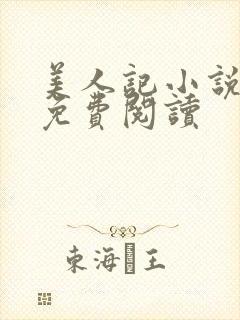 美人記小說
免費閱讀
東海 王